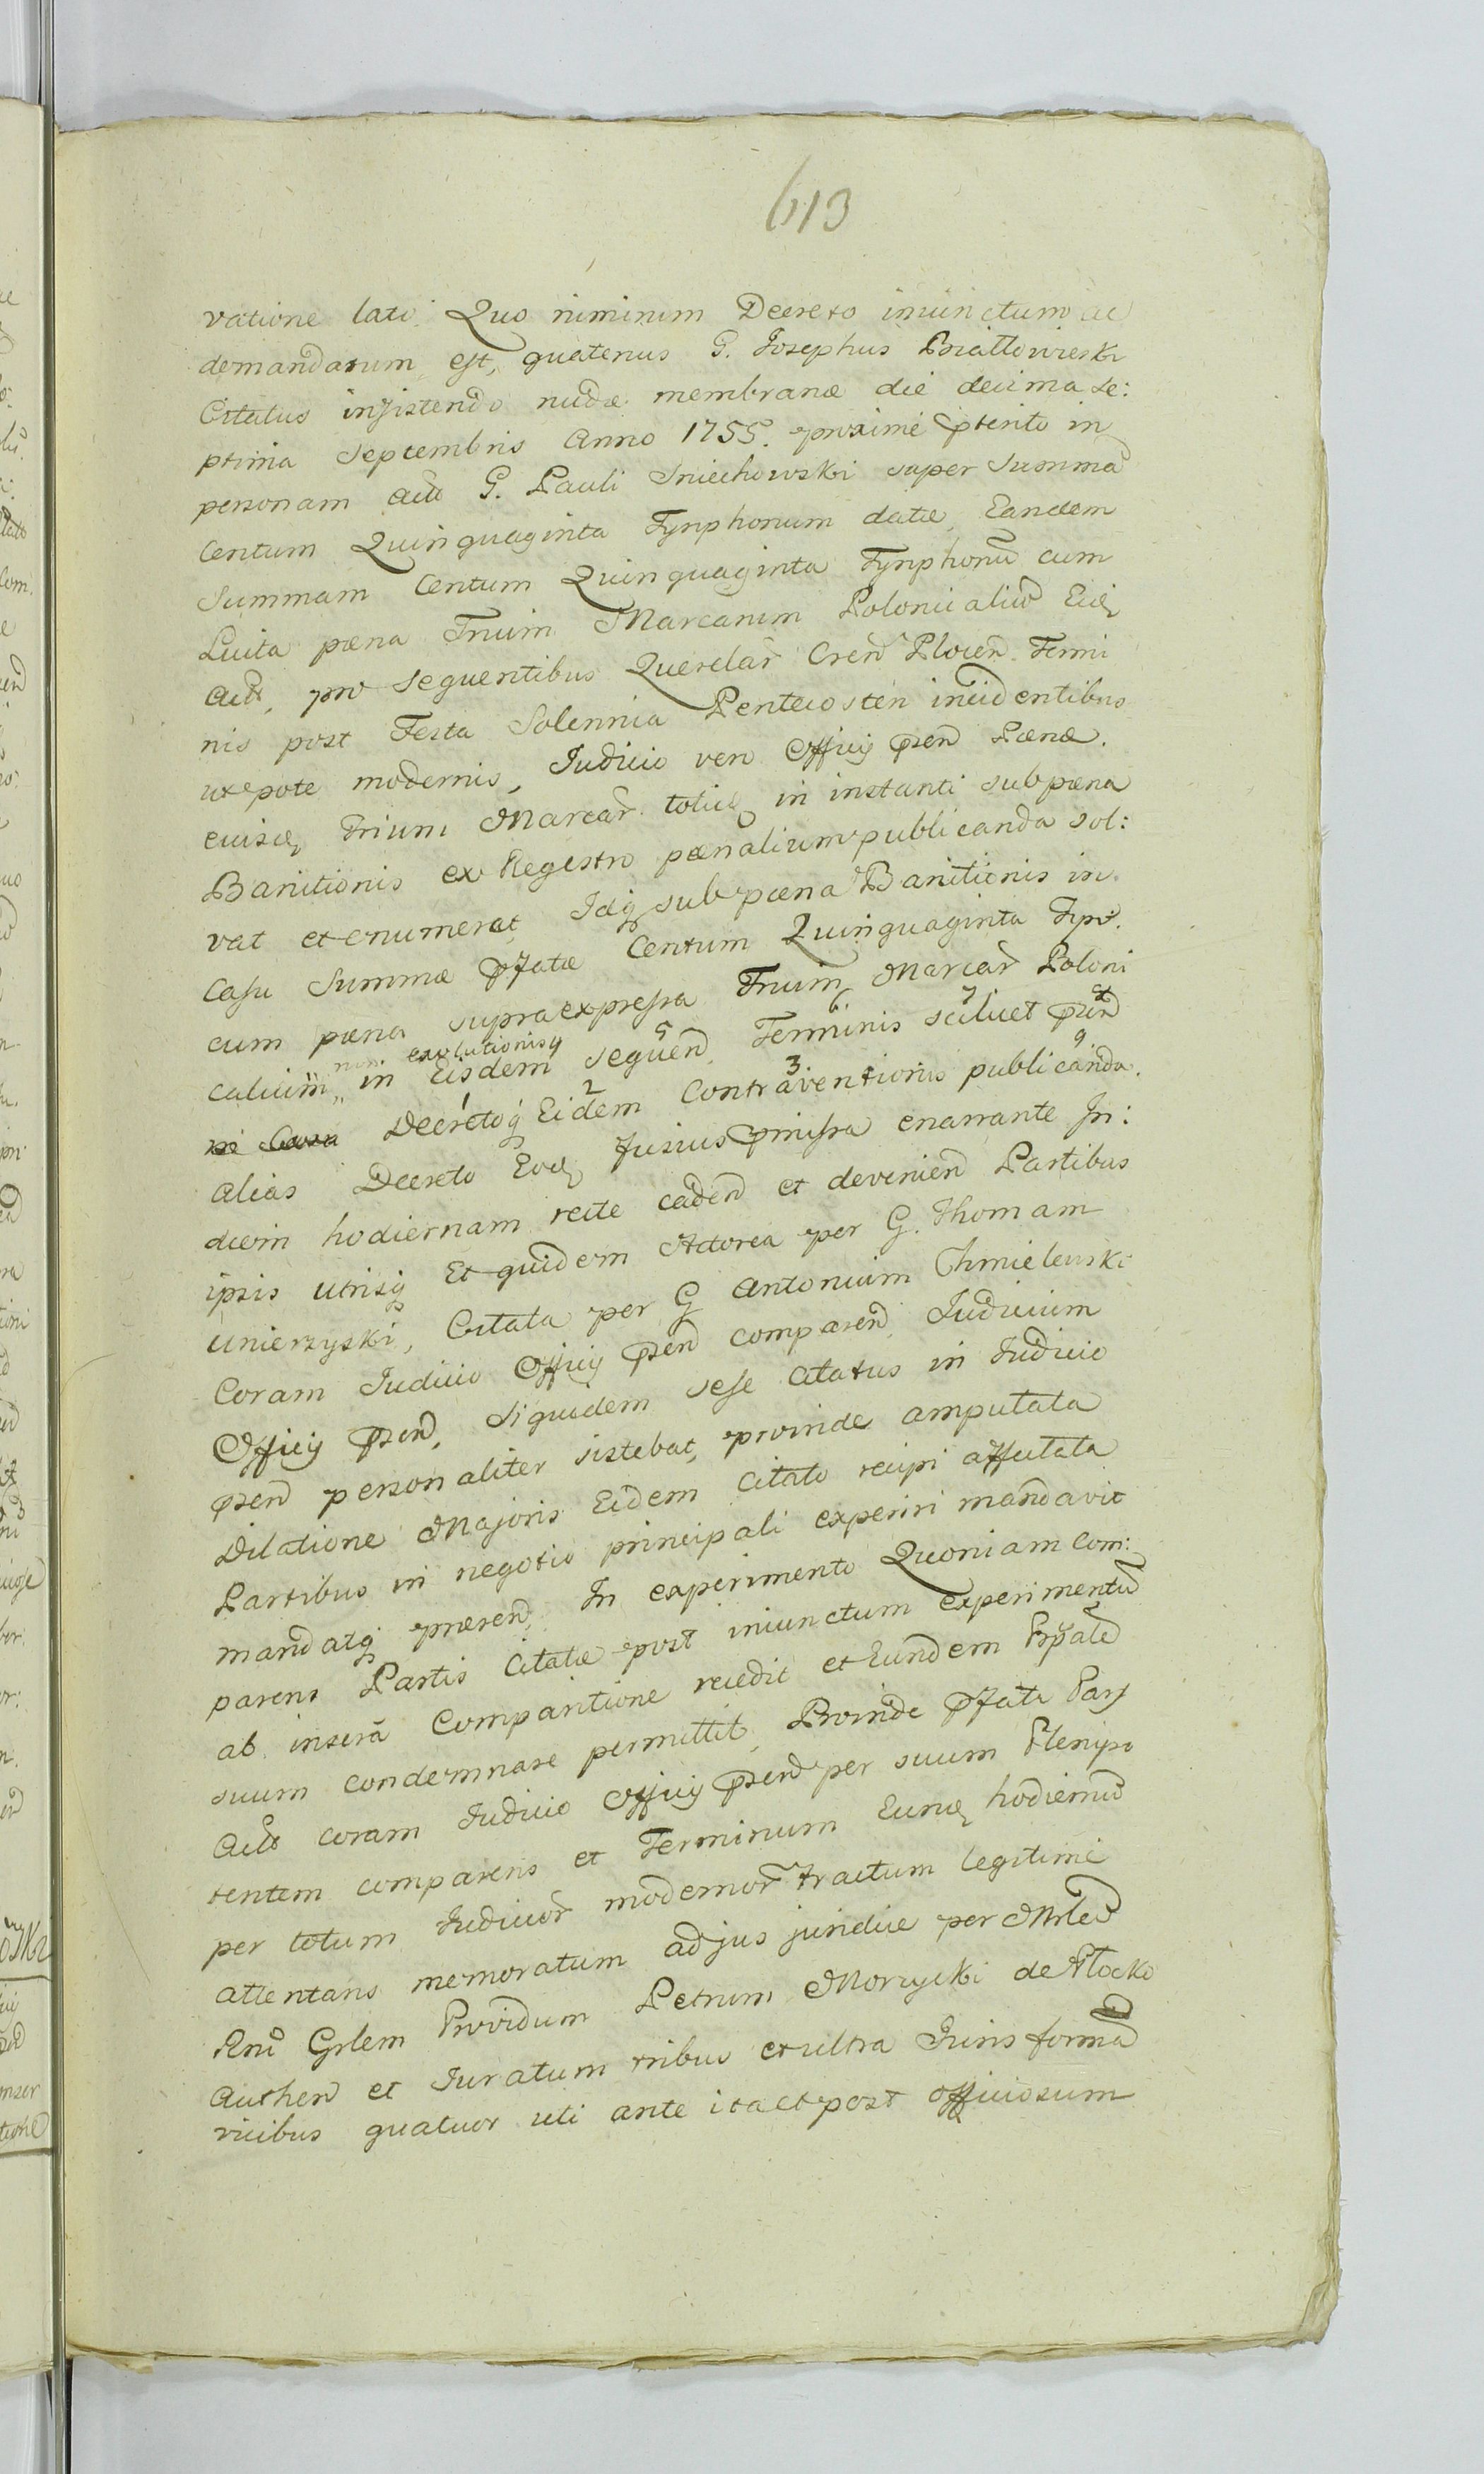 613
vatione lato. Quo nimirum Decreto iniunctum ac
demandatum est, quatenus G. Josephus Białłowieski
Citatus insistendo nudæ membranæ die decima se:
ptima Septembris Anno 1755. proxime pterito in
personam Act G. Pauli Sniechowski super Summa
Centum Quinquaginta Tynphonum datæ, Eandem
Summam Centum Quinquaginta Tynphonu cum
Luita pæna Trium Marcarum Polonicaliu Eidē
Act, pro sequentibus Querelar Cren Plocen Termi
nis post Festa Solennia Pentecosten incidentibus
utpote modernis, Judicio vero Officij psen Pænæ.
eiusdē Trium Marcar toties in instanti sub pæna
Banitionis ex Regestro pænalium publicanda sol:
vat et enumeret Idq sub pæna Banitionis in
Casu Summæ pfatæ Centum Quinquaginta Tyn.
cum pæna supra expressa Trium Marcar Poloni
calium in Eisdem sequen Terminis scilicet psen
non exolutionis
1 2 3 5 6 7 8 9
Decretoq Eidem Contraventionis publicanda.
alias Decreto Eodē fusius pmissa enarrante In:
diem hodiernam recte caden et devenien Partibus
ipsis utrisq Et quidem Actorea per G. Thomam
Unierzyski, Citata per G Antonium Chmielewski
Coram Judicio Officij psen comparen Judicium
Officij psen, siquidem sese Citatus in Judicio
psen personaliter sistebat, proinde amputata
Dilatione Majoris Eidem Citato recipi affectata
Partibus in negotio principali experiri mandavit
mandatq præsen. In experimento Quoniam Com:
parens Partis Citatæ post iniunctum Experimentu
ab inserā Comparitione recedit et Eundem Prpale
suum condemnare permittit, Proinde pfata Pars
Act coram Judicio Officij psen per suum Plenipo
tentem comparens et Terminum Eundē hodiernu
per totum Judicior modernor tractum legitime
attentans memoratum ad jus juridice per Mrlem
Rni Gnlem Providum Petrum Morzycki de Płocko
Authen et Juratum tribus et ultra Juris forma
vicibus quatuor uti ante ita et post officiosum